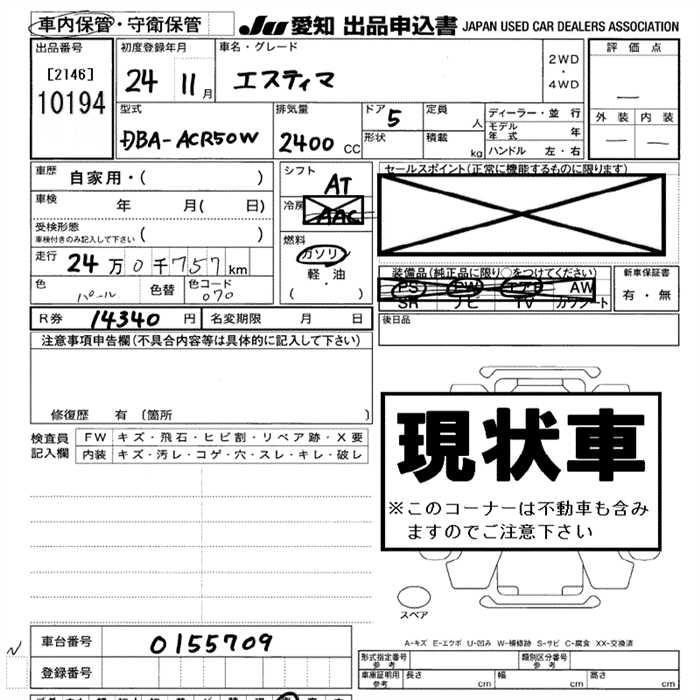 車内保管・守衛保管 JU 愛知 出品申込書 JAPAN USED CAR DEALERS ASSOCIATION
出品番号 初度登録年月 車名・グレード 評価点
[2146] 24 11月 エスティマ 2WD・4WD —
10194
型式 排気量 ドア 5 定員 人 ディーラー・並行 外装 内装
DBA-ACR50W 2400CC 形状 積載 kg モデル年式 年 — —
ハンドル 左・右
車歴 自家用・( ) シフト AT セールスポイント(正常に機能するものに限ります)
車検 年 月( 日) 冷房 AAC
受検形態 車検付きのみ記入して下さい ( )
燃料 ガソリン 軽・油 ( )
走行 24万0千757km
装備品(純正品に限り○をつけてください) 新車保証書
色 パール 色替 色コード 070
PS PW エアB AW 有・無
SR ナビ TV カワシート
R券 14340円 名変期限 月 日 後日品
注意事項申告欄(不具合内容等は具体的に記入して下さい)
修復歴 有 〔箇所 〕
検査員記入欄 FW キズ・飛石・ヒビ割・リペア跡・X要
内装 キズ・汚レ・コゲ・穴・スレ・キレ・破レ
現状車
※このコーナーは不動車も含み
ますのでご注意下さい
スペア
A-キズ E-エクボ U-凹み W-補修跡 S-サビ C-腐食 XX-交換済
N
車台番号 0155709
登録番号
形式指定番号 参考 類別区分番号 参考
車庫証明用 参考 長さ cm 幅 cm 高さ cm